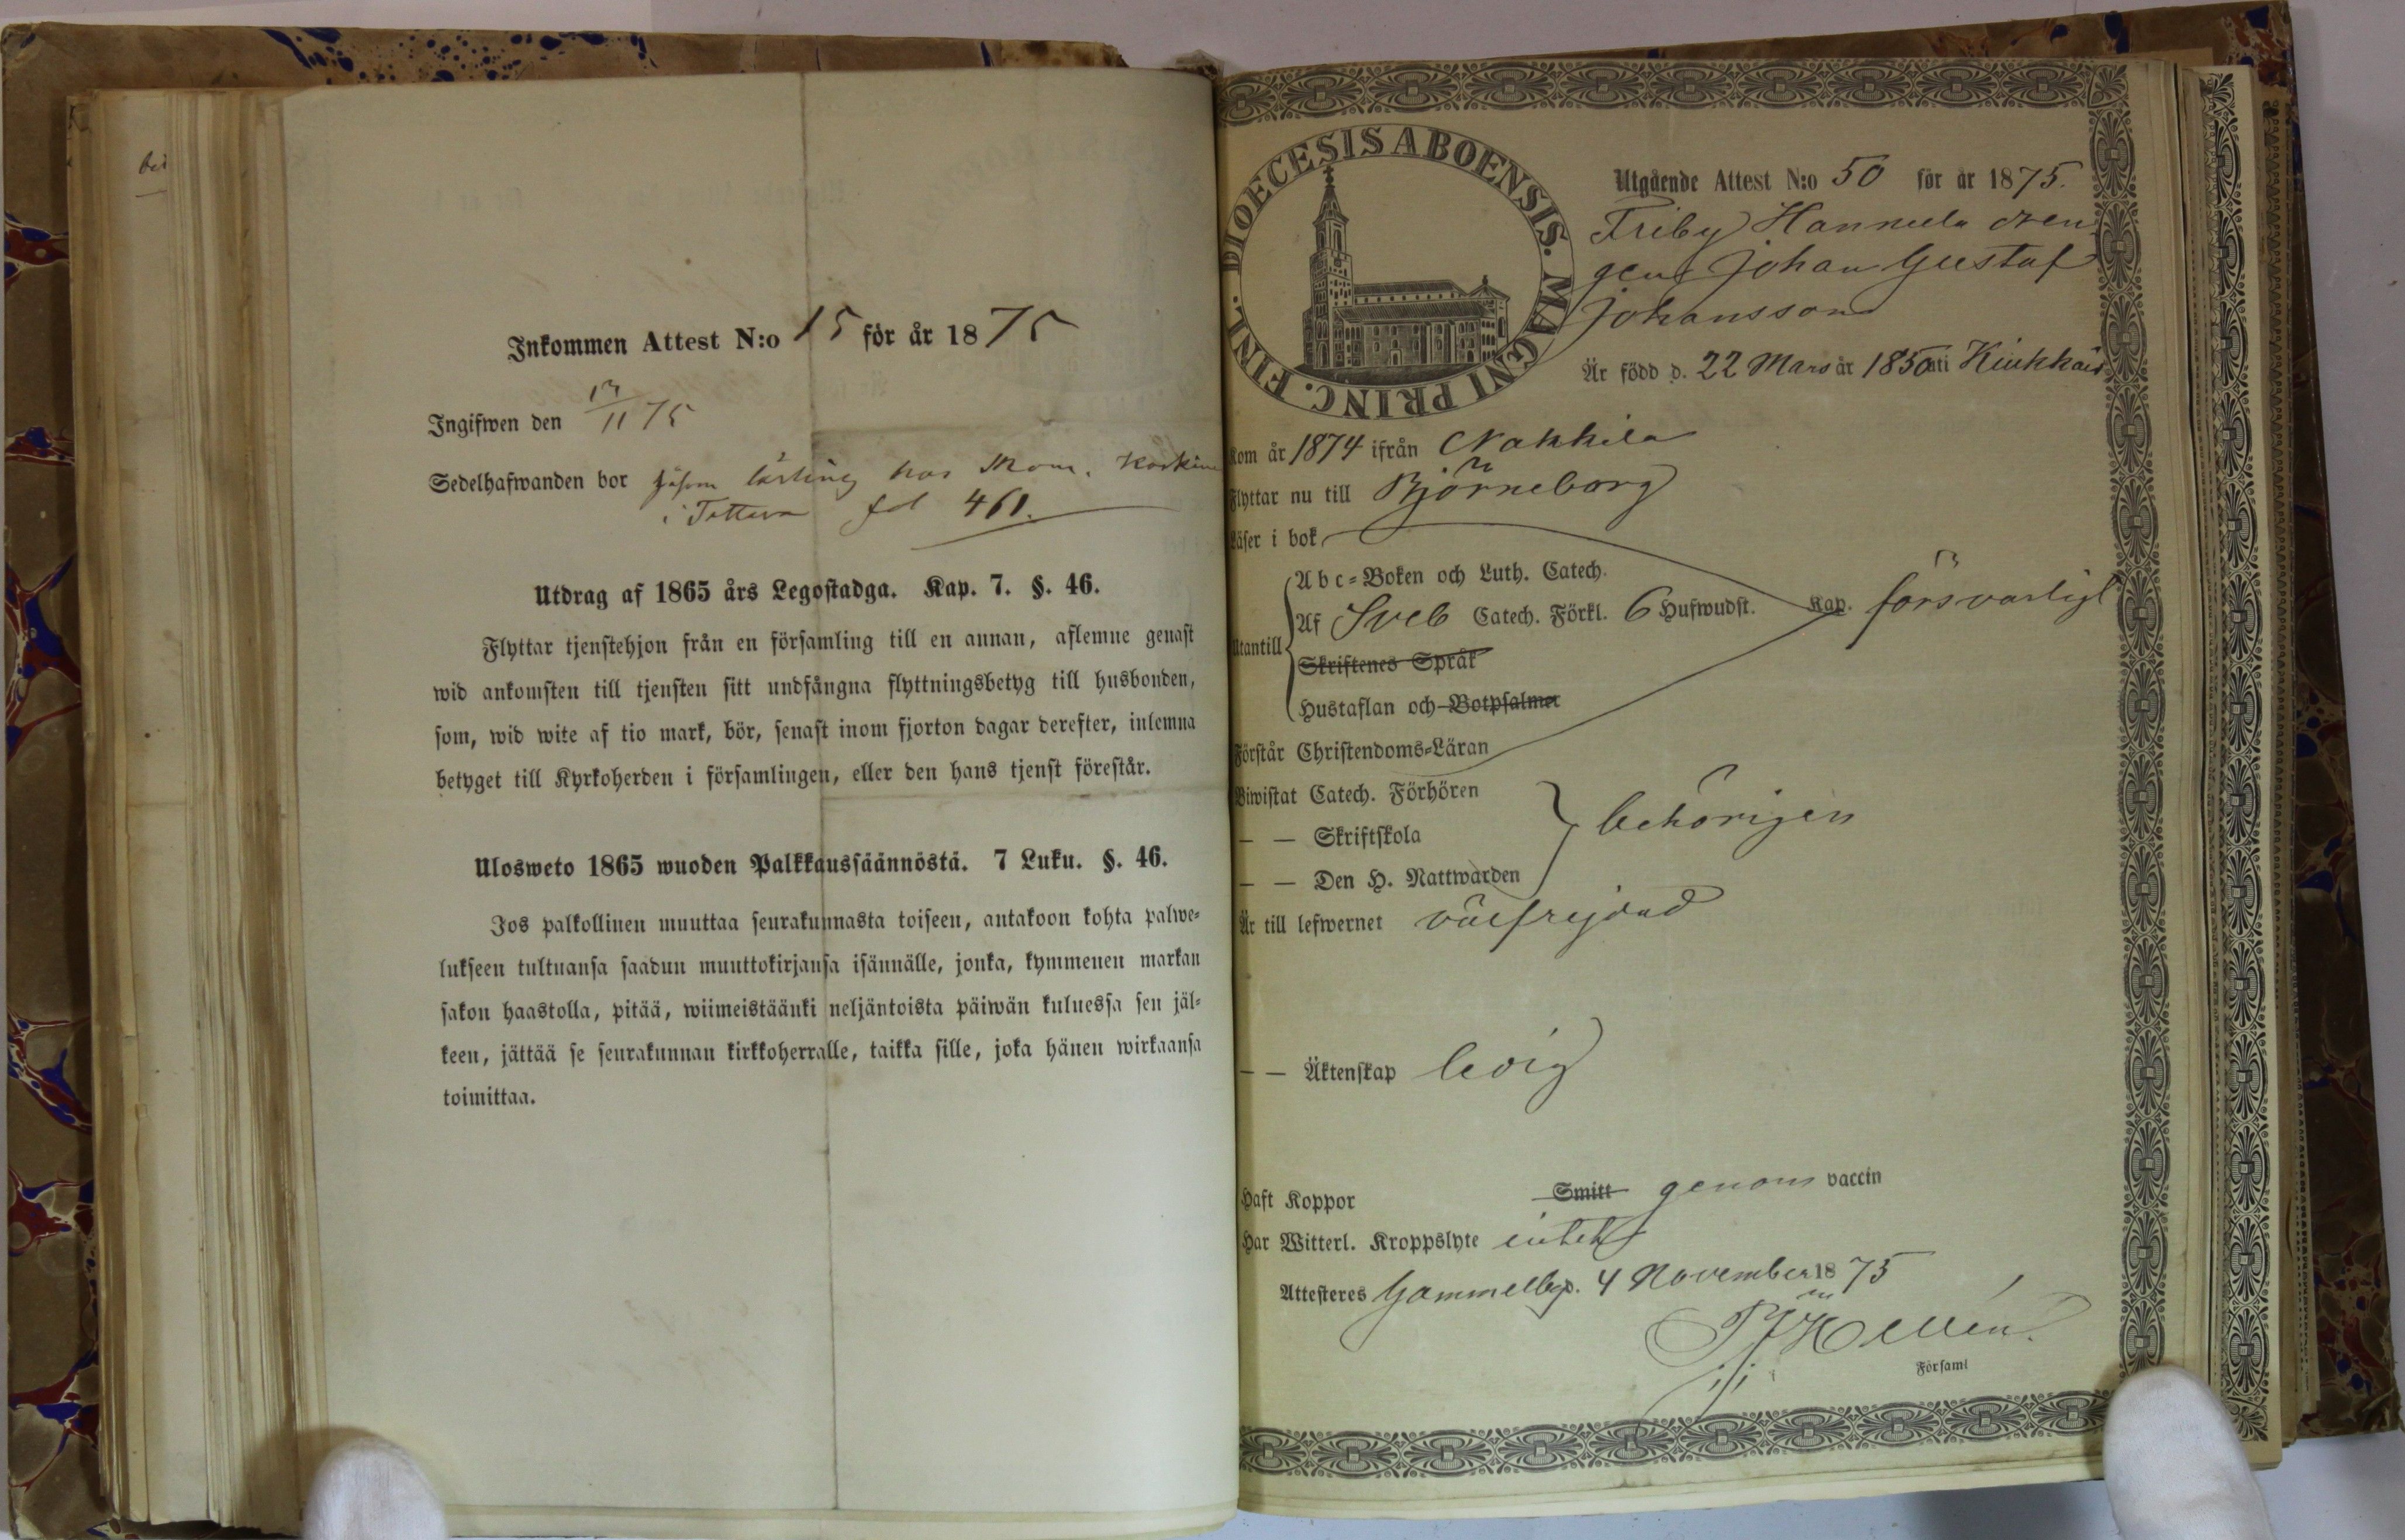 bei
Inkommen Attest N:o 15 för år 1875
Ingifwen den 13/11 75
Sedelhafwanden bor såsom lärling hos Skom. Koskine
i Tattara fol 461.
Utdrag af 1865 års Legostadga. Kap. 7. §. 46.
Flyttar tjenstehjon från en församling till en annan, aflemne genast
wid ankomsten till tjensten sitt undfångna flyttningsbetyg till husbonden,
som, wid wite af tio mark, bör, senast inom fjorton dagar derefter, inlemna
betyget till Kyrkoherden i församlingen, eller den hans tjenst förestår.
Ulosweto 1865 wuoden Palkkaussäännöstä. 7 Luku. §. 46.
Jos palkollinen muuttaa seurakunnasta toiseen, antakoon kohta palwe-
lukseen tultuansa saadun muuttokirjansa isännälle, jonka, kymmenen markan
sakon haastolla, pitää, wiimeistäänki neljäntoista päiwän kuluessa sen jäl-
keen, jättää se seurakunnan kirkkoherralle, taikka sille, joka hänen wirkaansa
toimittaa.
DIOECESIS ABOENSIS. MAGNI PRINC. FINL.
Utgående Attest N:o 50 för år 1875.
Friby Hannula dren
gen Johan Gustaf
Johansson
Är född d. 22 Mars år 1850 uti Kiukkais
Kom år 1874 ifrån Nakkila
Flyttar nu till Björneborg
Läser i bok
Abc-Boken och Luth. Catech.
Utantill Af Sveb Catech. Förkl. 6 Hufwudst. Kap. försvarligt
Skriftenes Språk
Hustaflan och Botpsalmer
Förstår Christendoms-Läran
Biwistat Catech. Förhören
— — Skriftskola behörigen
— — Den H. Nattwarden
Är till lefwernet välfrejdad
— — Äktenskap ledig
Haft Koppor Smitt genom vaccin
Har Witterl. Kroppslyte intet
Attesteres Gammelby d. 4 November 1875
Församl